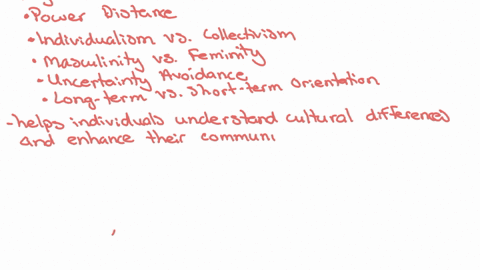 • Power Distance
• Individualism vs. Collectivism
• Masculinity vs. Feminity
• Uncertainty Avoidance
• Long-term vs. Short-term Orientation
- helps individuals understand cultural differences
and enhance their communi